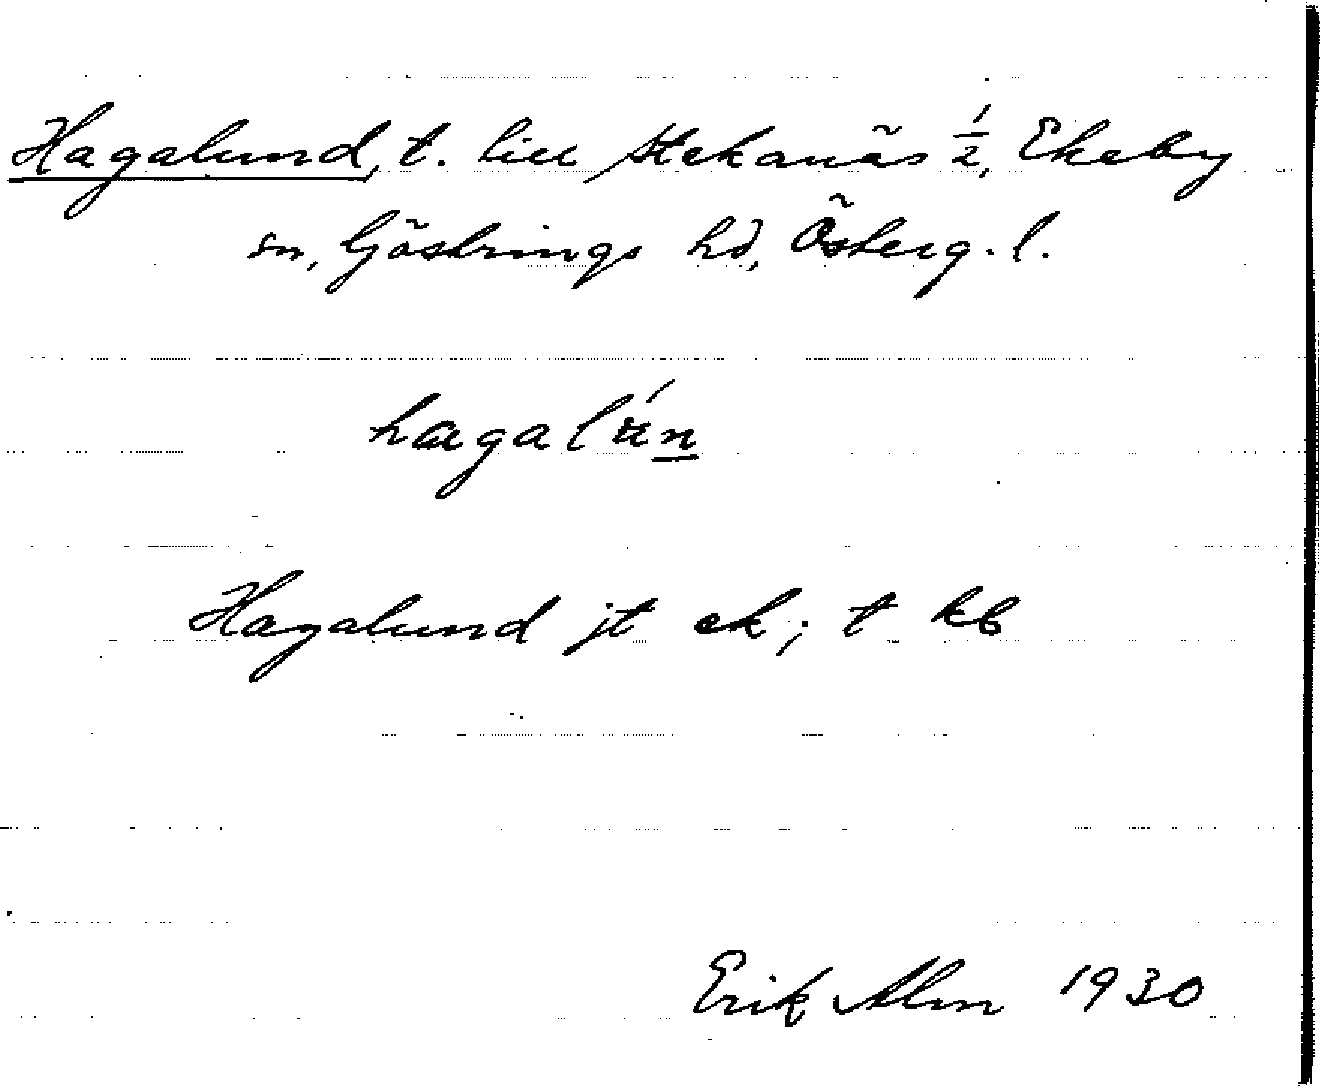 Hagalund, t. till Stekanäs 1/2, Ekeby
sn, Göstrings hd, Österg. l.
hagalún
Hagalund jt ek; t kb
Erik Alm 1930